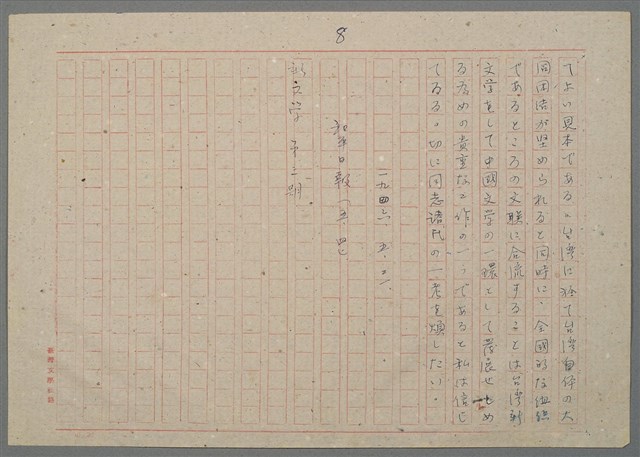 8
てよい見本である。台湾に於て台湾自体の大
同団結が堅められると同時に、全國的な組織
であるところの文聯に合流することは台湾新
文学をして中國文学の一環として発展せしめ
る為めの貴重な工作の一つであると私は信じ
てゐる。切に同志諸氏の一考を煩したい。
一九四六、五、
和平日報
新文学 第二期